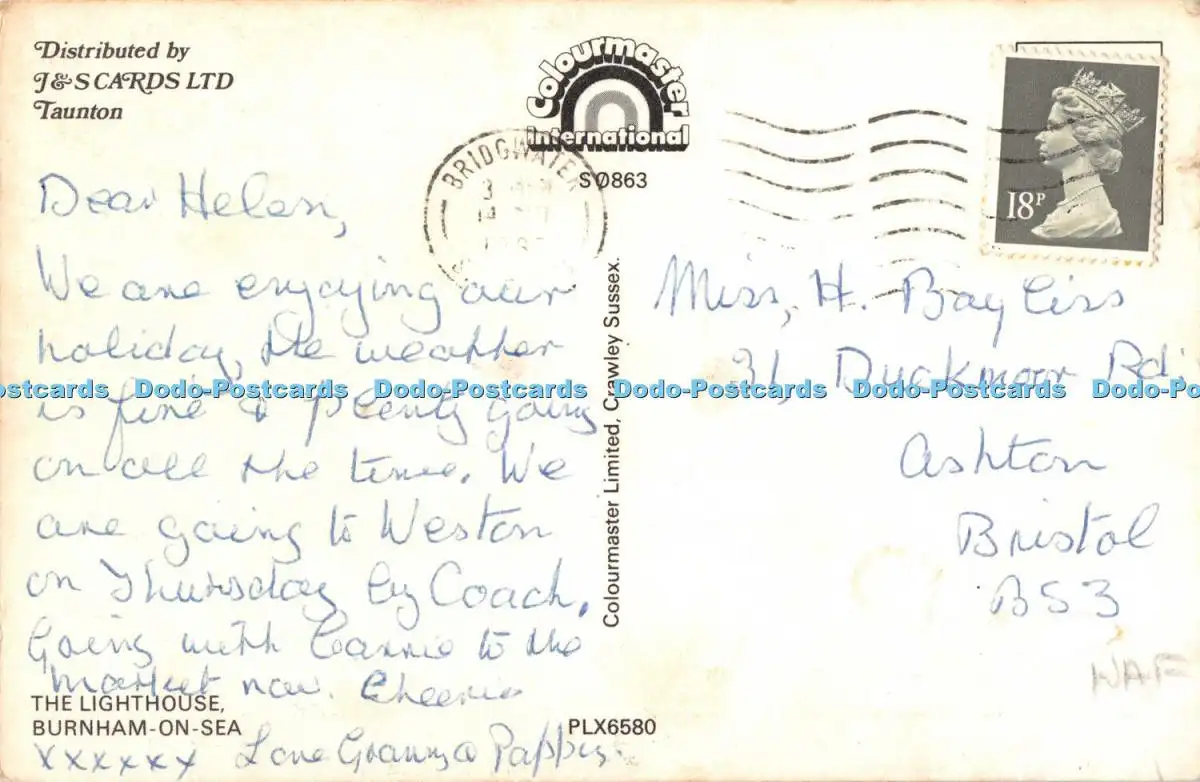 Distributed by
J&S CARDS LTD
Taunton
Colourmaster
International
SØ863
BRIDGWATER
18P
Dear Helen,
We are enjoying our
holiday, the weather
is fine & plenty going
on all the time. We
are going to Weston
on Thursday by Coach.
Going with Carrie to the
market now. Cheerio
xxxxxx Love Granny & Pappy.
THE LIGHTHOUSE,
BURNHAM-ON-SEA
PLX6580
Colourmaster Limited, Crawley Sussex.
Miss, H. Bayliss
31, Duckmoor Rd.
Ashton
Bristol
BS3
WAF
Postcards Dodo-Postcards Dodo-Postcards Dodo-Postcards Dodo-Postcards Dodo-